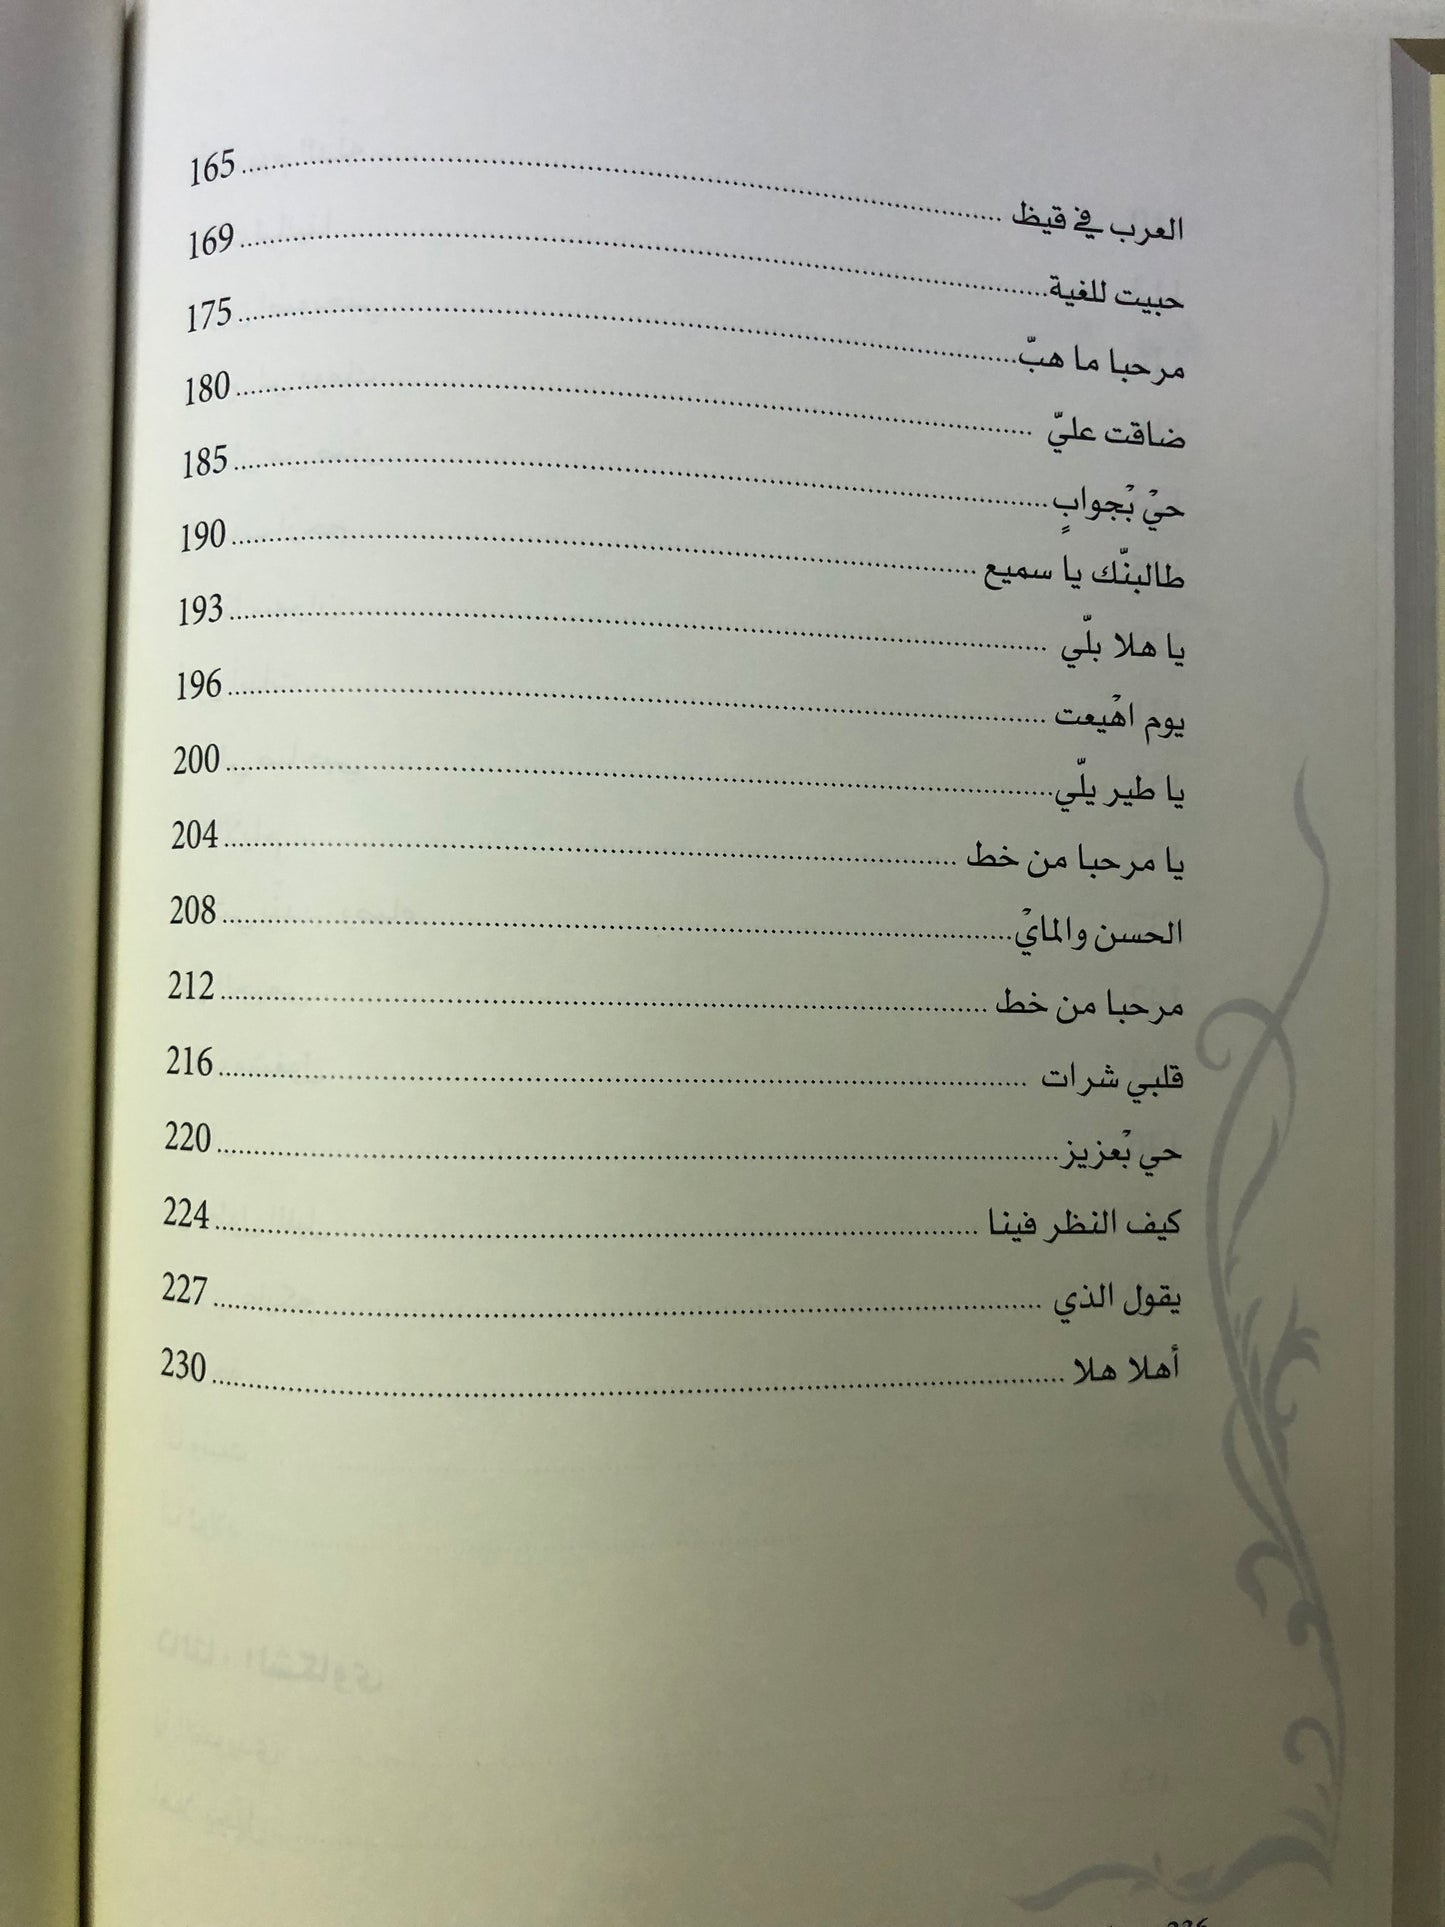 العرب في قيظ ........ 165
حبيت للغية ........ 169
مرحبا ما هبّ ........ 175
ضاقت عليّ ........ 180
حيْ بْجوابٍ ........ 185
طالبنّك يا سميع ........ 190
يا هلا بلّي ........ 193
يوم اهْيعت ........ 196
يا طير يلّي ........ 200
يا مرحبا من خط ........ 204
الحسن والمايْ ........ 208
مرحبا من خط ........ 212
قلبي شرات ........ 216
حي بْعزيز ........ 220
كيف النظر فينا ........ 224
يقول الذي ........ 227
أهلا هلا ........ 230